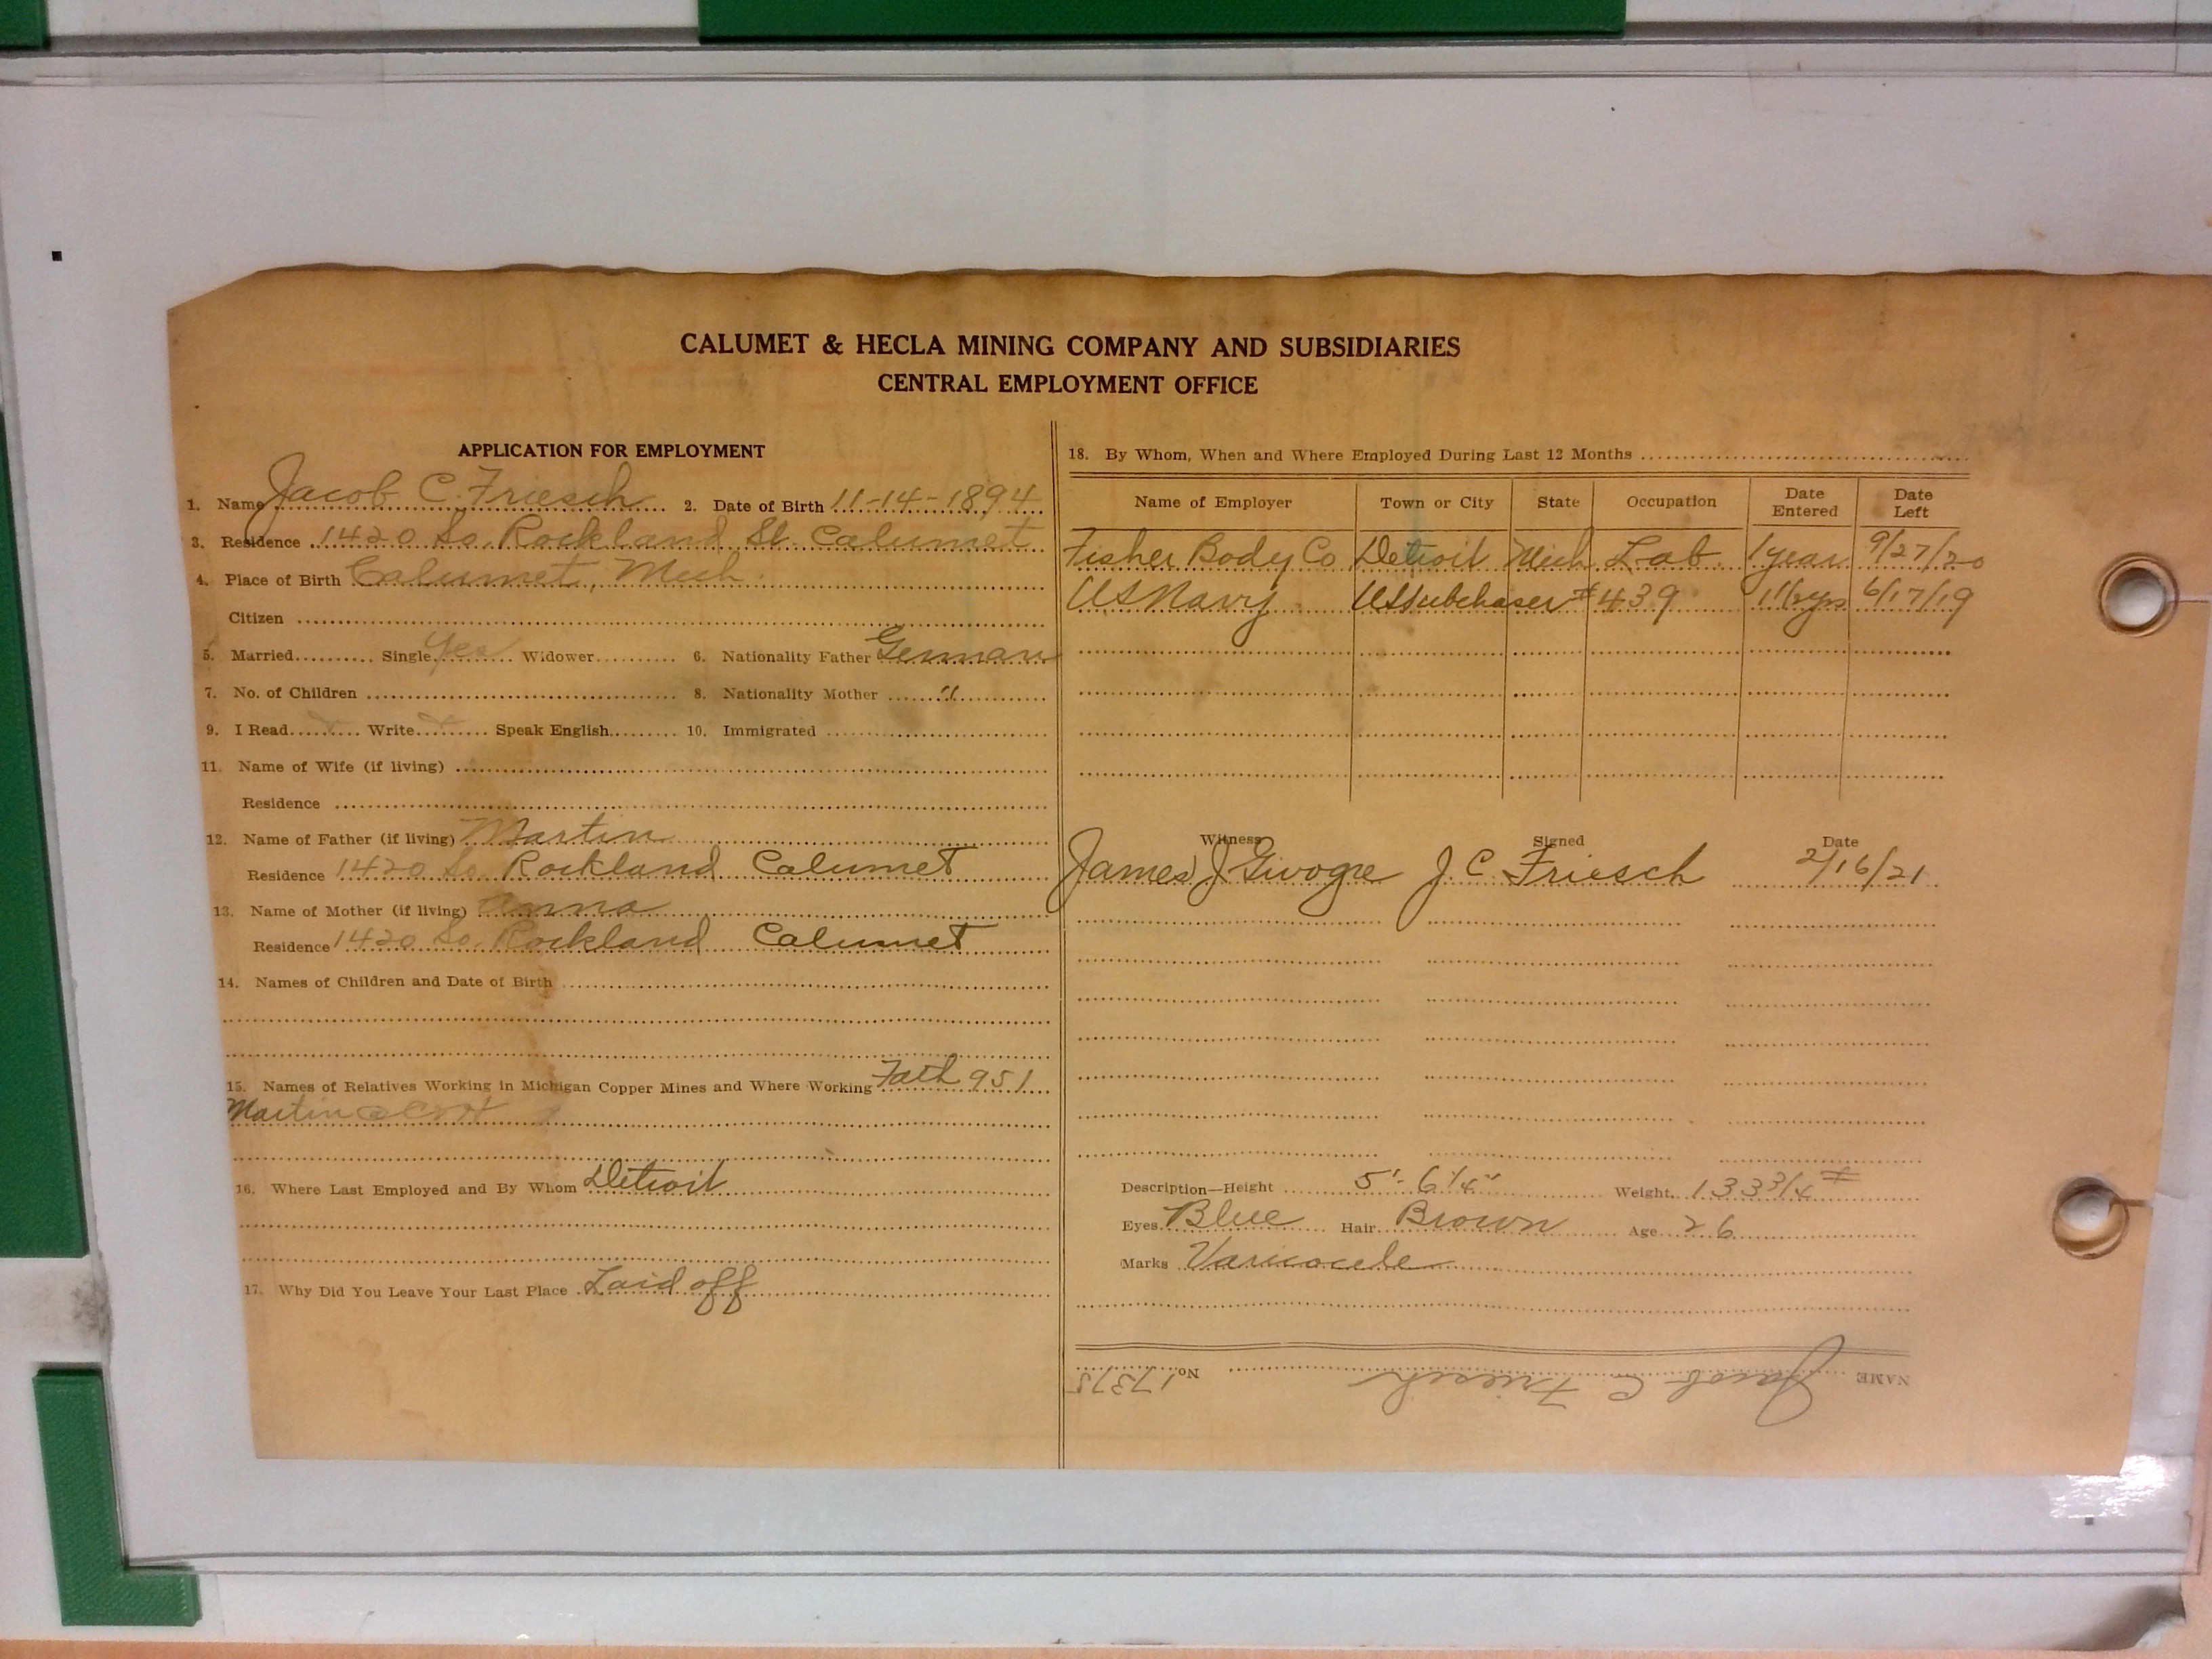 CALUMET & HECLA MINING COMPANY AND SUBSIDIARIES
CENTRAL EMPLOYMENT OFFICE
APPLICATION FOR EMPLOYMENT
1. Name Jacob C. Friesch 2. Date of Birth 11-14-1894
3. Residence 1420 So. Rockland St. Calumet
4. Place of Birth Calumet, Mich.
Citizen
5. Married Single Yes Widower 6. Nationality Father German
7. No. of Children 8. Nationality Mother "
9. I Read Write Speak English 10. Immigrated
11. Name of Wife (if living)
Residence
12. Name of Father (if living) Martin
Residence 1420 So. Rockland Calumet
13. Name of Mother (if living) Anna
Residence 1420 So. Rockland Calumet
14. Names of Children and Date of Birth
15. Names of Relatives Working in Michigan Copper Mines and Where Working Fath 951
Martin
16. Where Last Employed and By Whom Detroit
17. Why Did You Leave Your Last Place Laid off
18. By Whom, When and Where Employed During Last 12 Months
Name of Employer Town or City State Occupation Date Entered Date Left
Fisher Body Co Detroit Mich Lab. 1 year 9/27/20
US Navy US Subchaser #439 1 1/2 yrs 6/17/19
Witness Signed Date
James J. J. C. Friesch 2/16/21
Description—Height 5'-6 1/4" Weight 133 3/4 #
Eyes Blue Hair Brown Age 26
Marks Varicocele
NAME Jacob C Friesch No. 17375